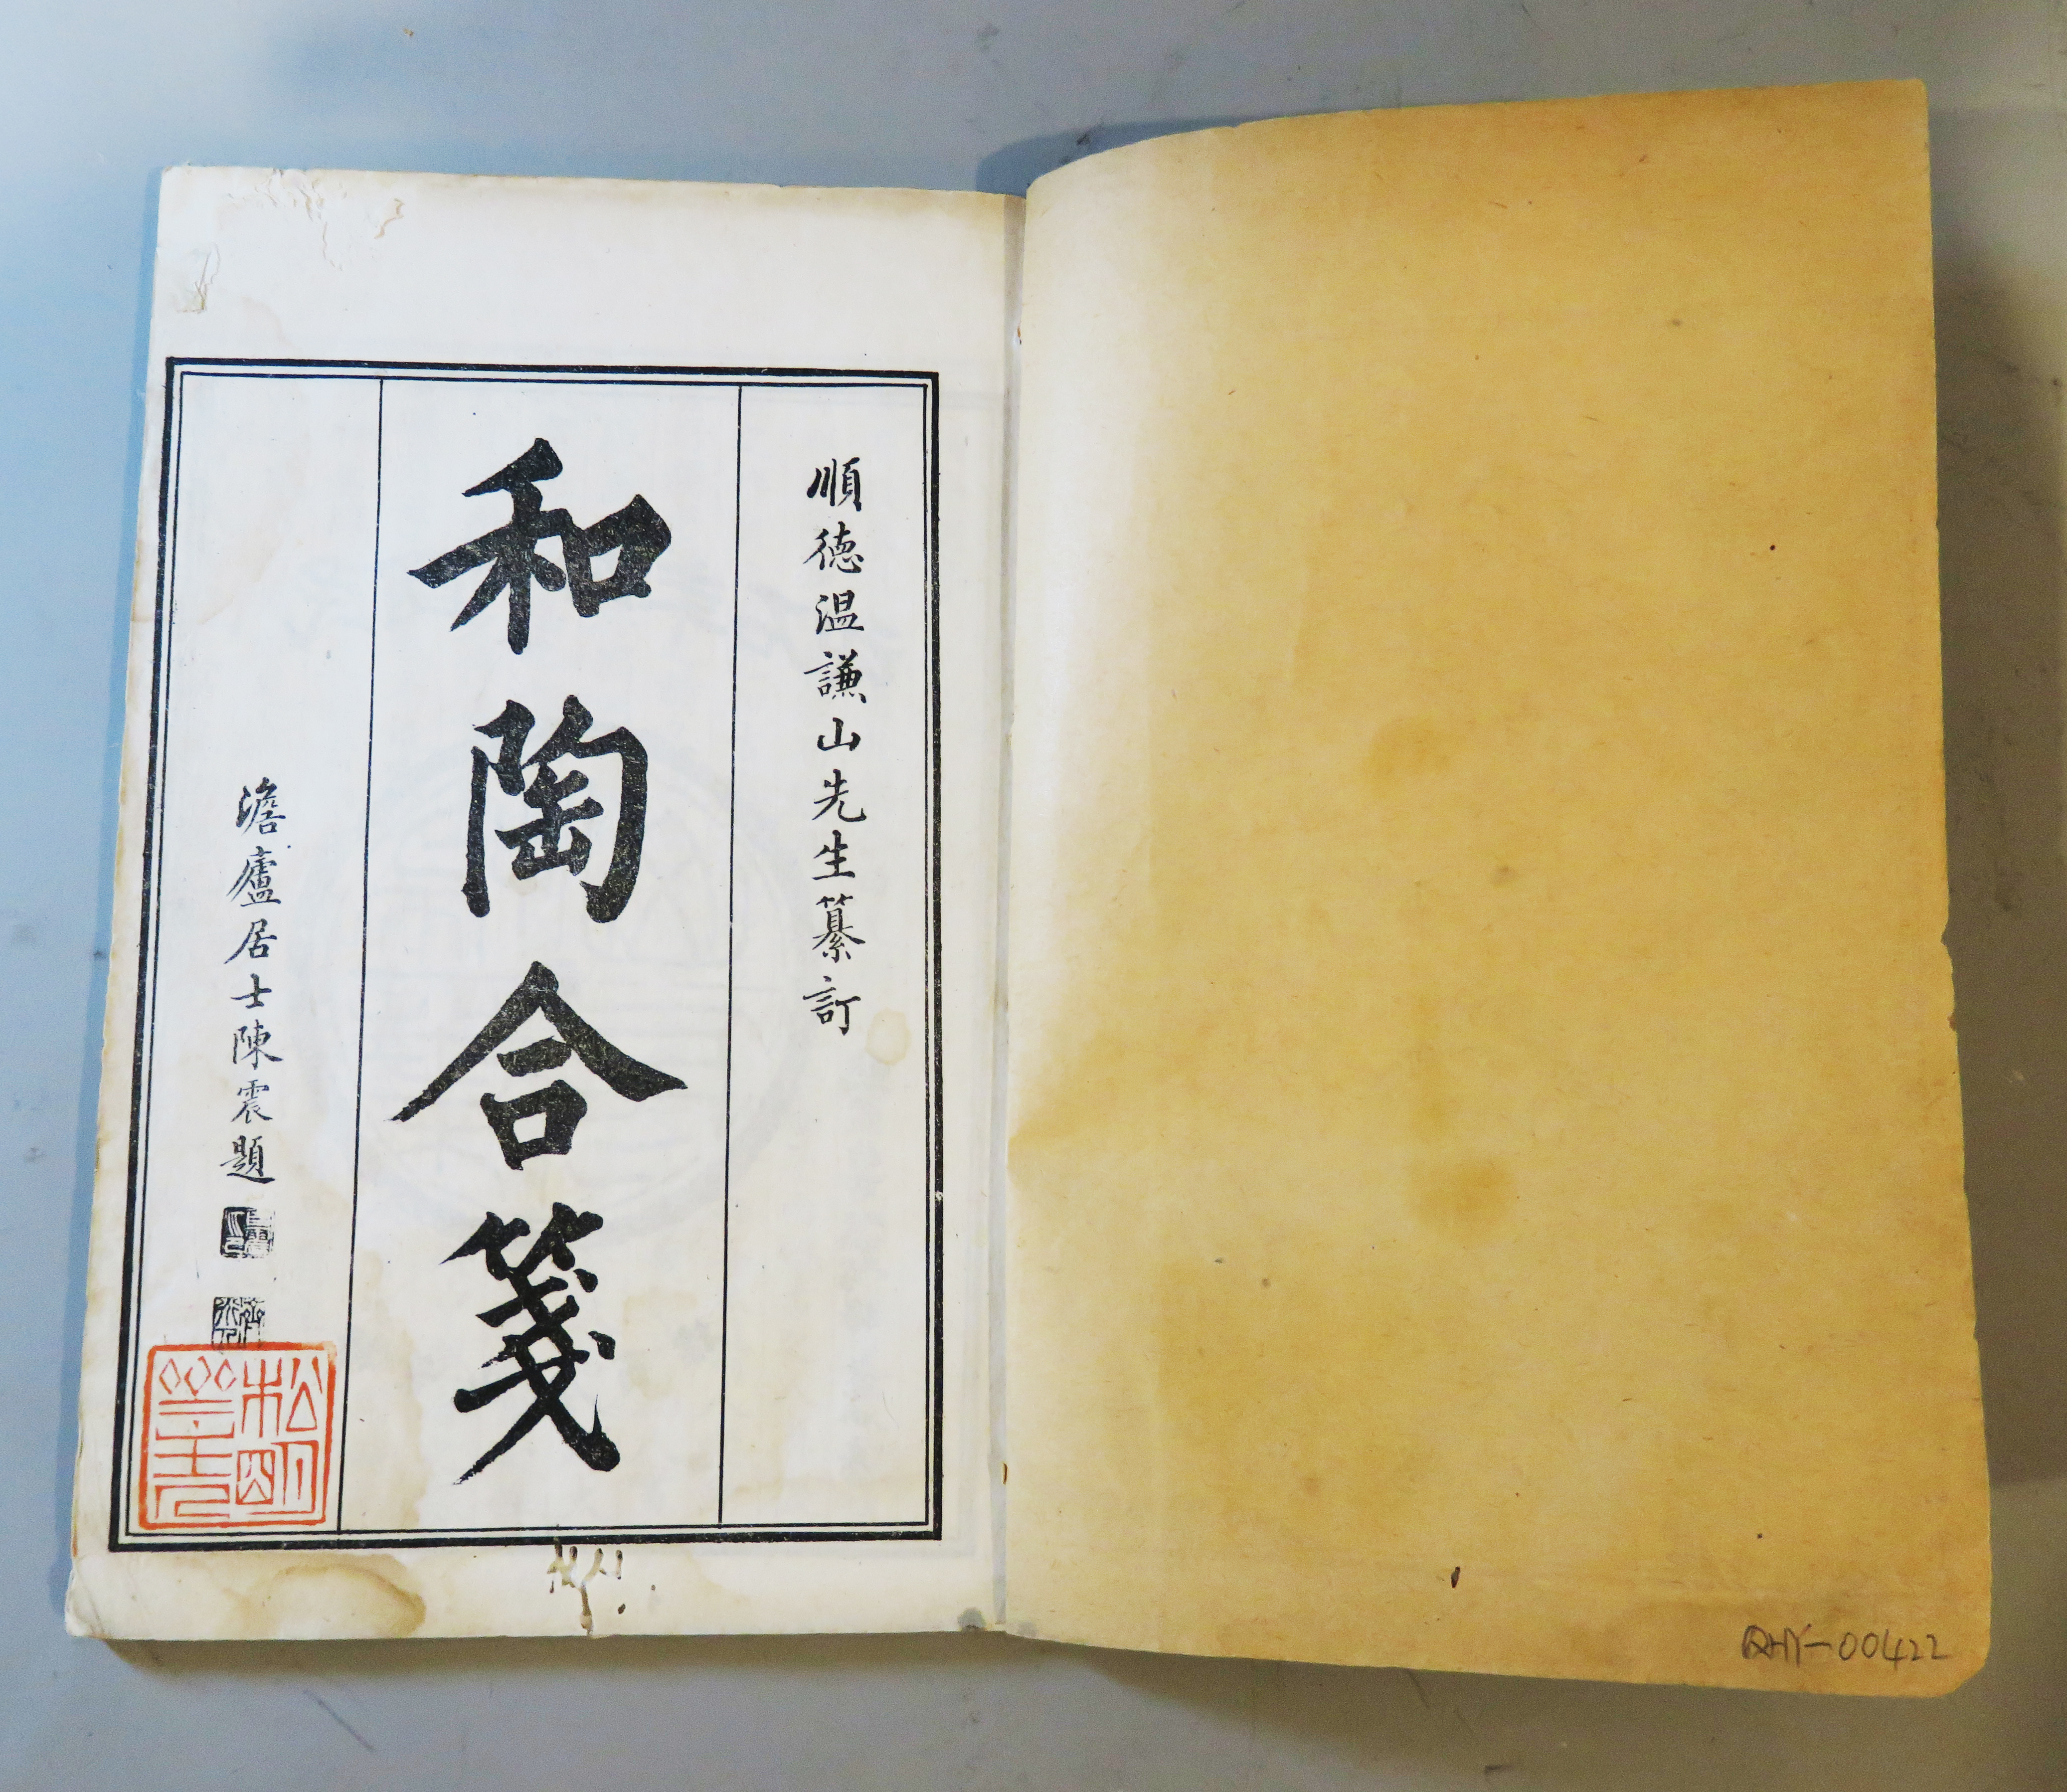 順德溫謙山先生纂訂
和陶合箋
澹廬居士陳震題
QHY-00422